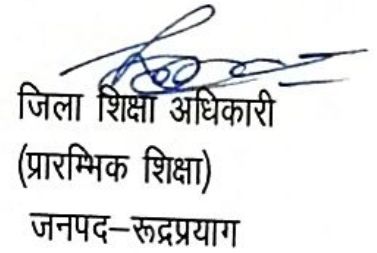 जिला शिक्षा अधिकारी
(प्रारम्भिक शिक्षा)
जनपद–रूद्रप्रयाग